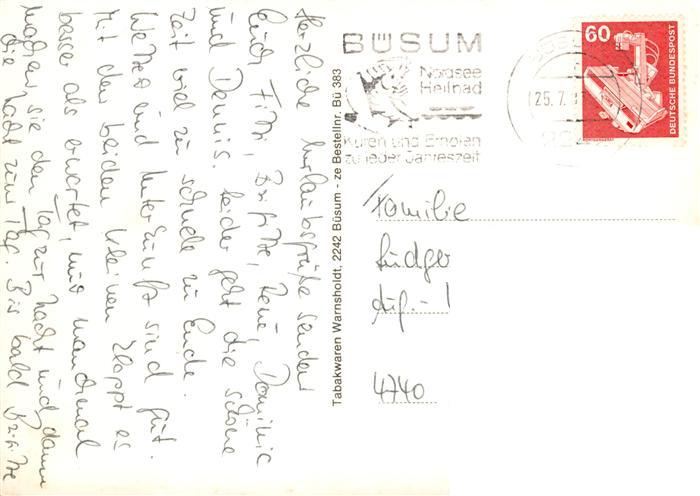 Herzliche Urlaubsgrüße senden
Euch Fitti, Brigitte, René, Dominic
und Dennis. Leider geht die schöne
Zeit viel zu schnell zu Ende.
Wetter und Unterkunft sind gut.
Mit den beiden Kleinen klappt es
besser als erwartet, und manchmal
machen sie den Tag zur Nacht und dann
die Nacht zum Tag. Bis bald Brigitte
Tabakwaren Warnsholdt, 2242 Büsum - ze Bestellnr. Bü 383
BÜSUM
Nordsee
Heilbad
Kuren und Erholen
zu jeder Jahreszeit
25.7.
60
DEUTSCHE BUNDESPOST
Familie
Ludger
4740